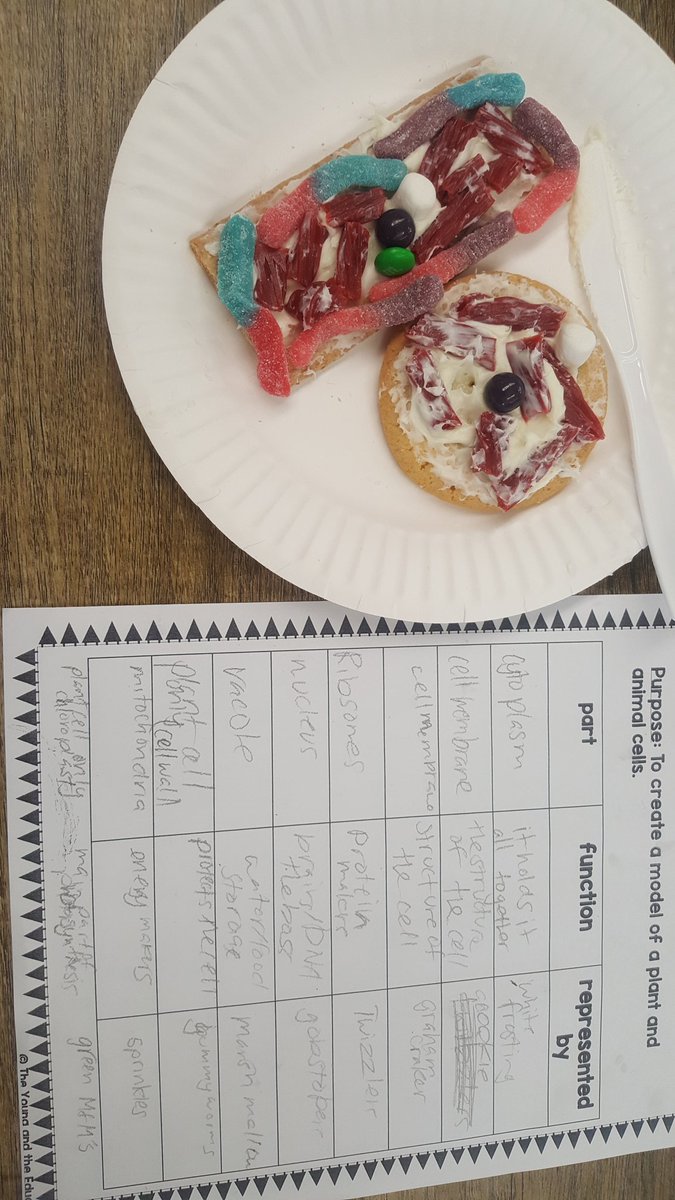 Purpose: To create a model of a plant and
animal cells.
part function represented
by
cytoplasm it holds it
all together white
frosting
cell membrane the structure
of the cell cookie
cell membrane structure of
the cell graham
craker
Ribsomes Protein
makers Twizzlelr
nucleus brain/DNA
the boss gobestoper
vacole water/food
storage marshmallow
plant cell
cell wall protets the cell gummy worms
mitochondria energy makers sprinkles
plant cell only
chloroplast green M&M's
© The Young and the Edu